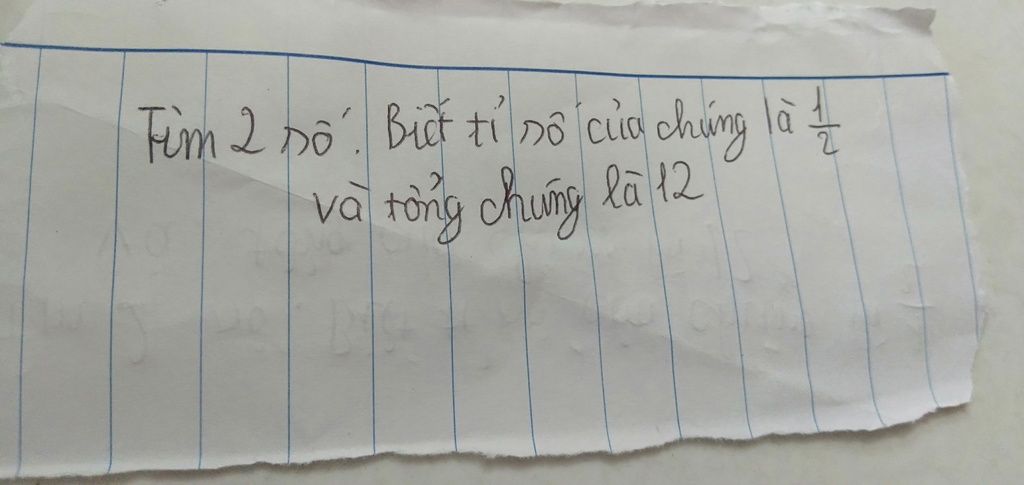 Tìm 2 số. Biết tỉ số của chúng là 1/2
và tổng chúng là 12